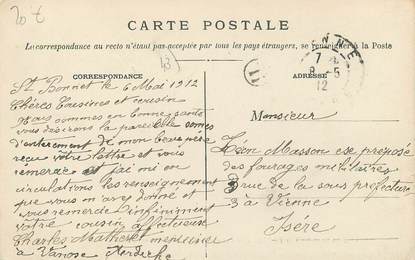 CARTE POSTALE
La correspondance au recto n'étant pas acceptée par tous les pays étrangers, se renseigner à la Poste
CORRESPONDANCE
ADRESSE
St Bonnet le 6 Mai 1912
Chères Cousines et cousin
Nous sommes en bonne santé
vous désirons la pareille sommes
d'enterrement de mon beau père
reçu votre lettre et vous
remercie et j'ai mi en
circulations les renseignement
que vous m'avez donné et
vous remercie infiniment
votre cousin affectueux
Charles menuisier
à Vanosc Ardèche
Monsieur
Léon Masson ex préposé
des fourages militaires
3 rue de la sous préfecture
à Vienne
Isère
11
12